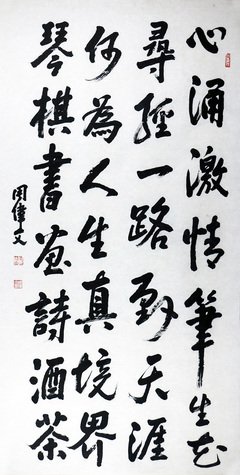 心涌激情筆生花
尋經一路到天涯
何為人生真境界
琴棋書画詩酒茶
周偉文